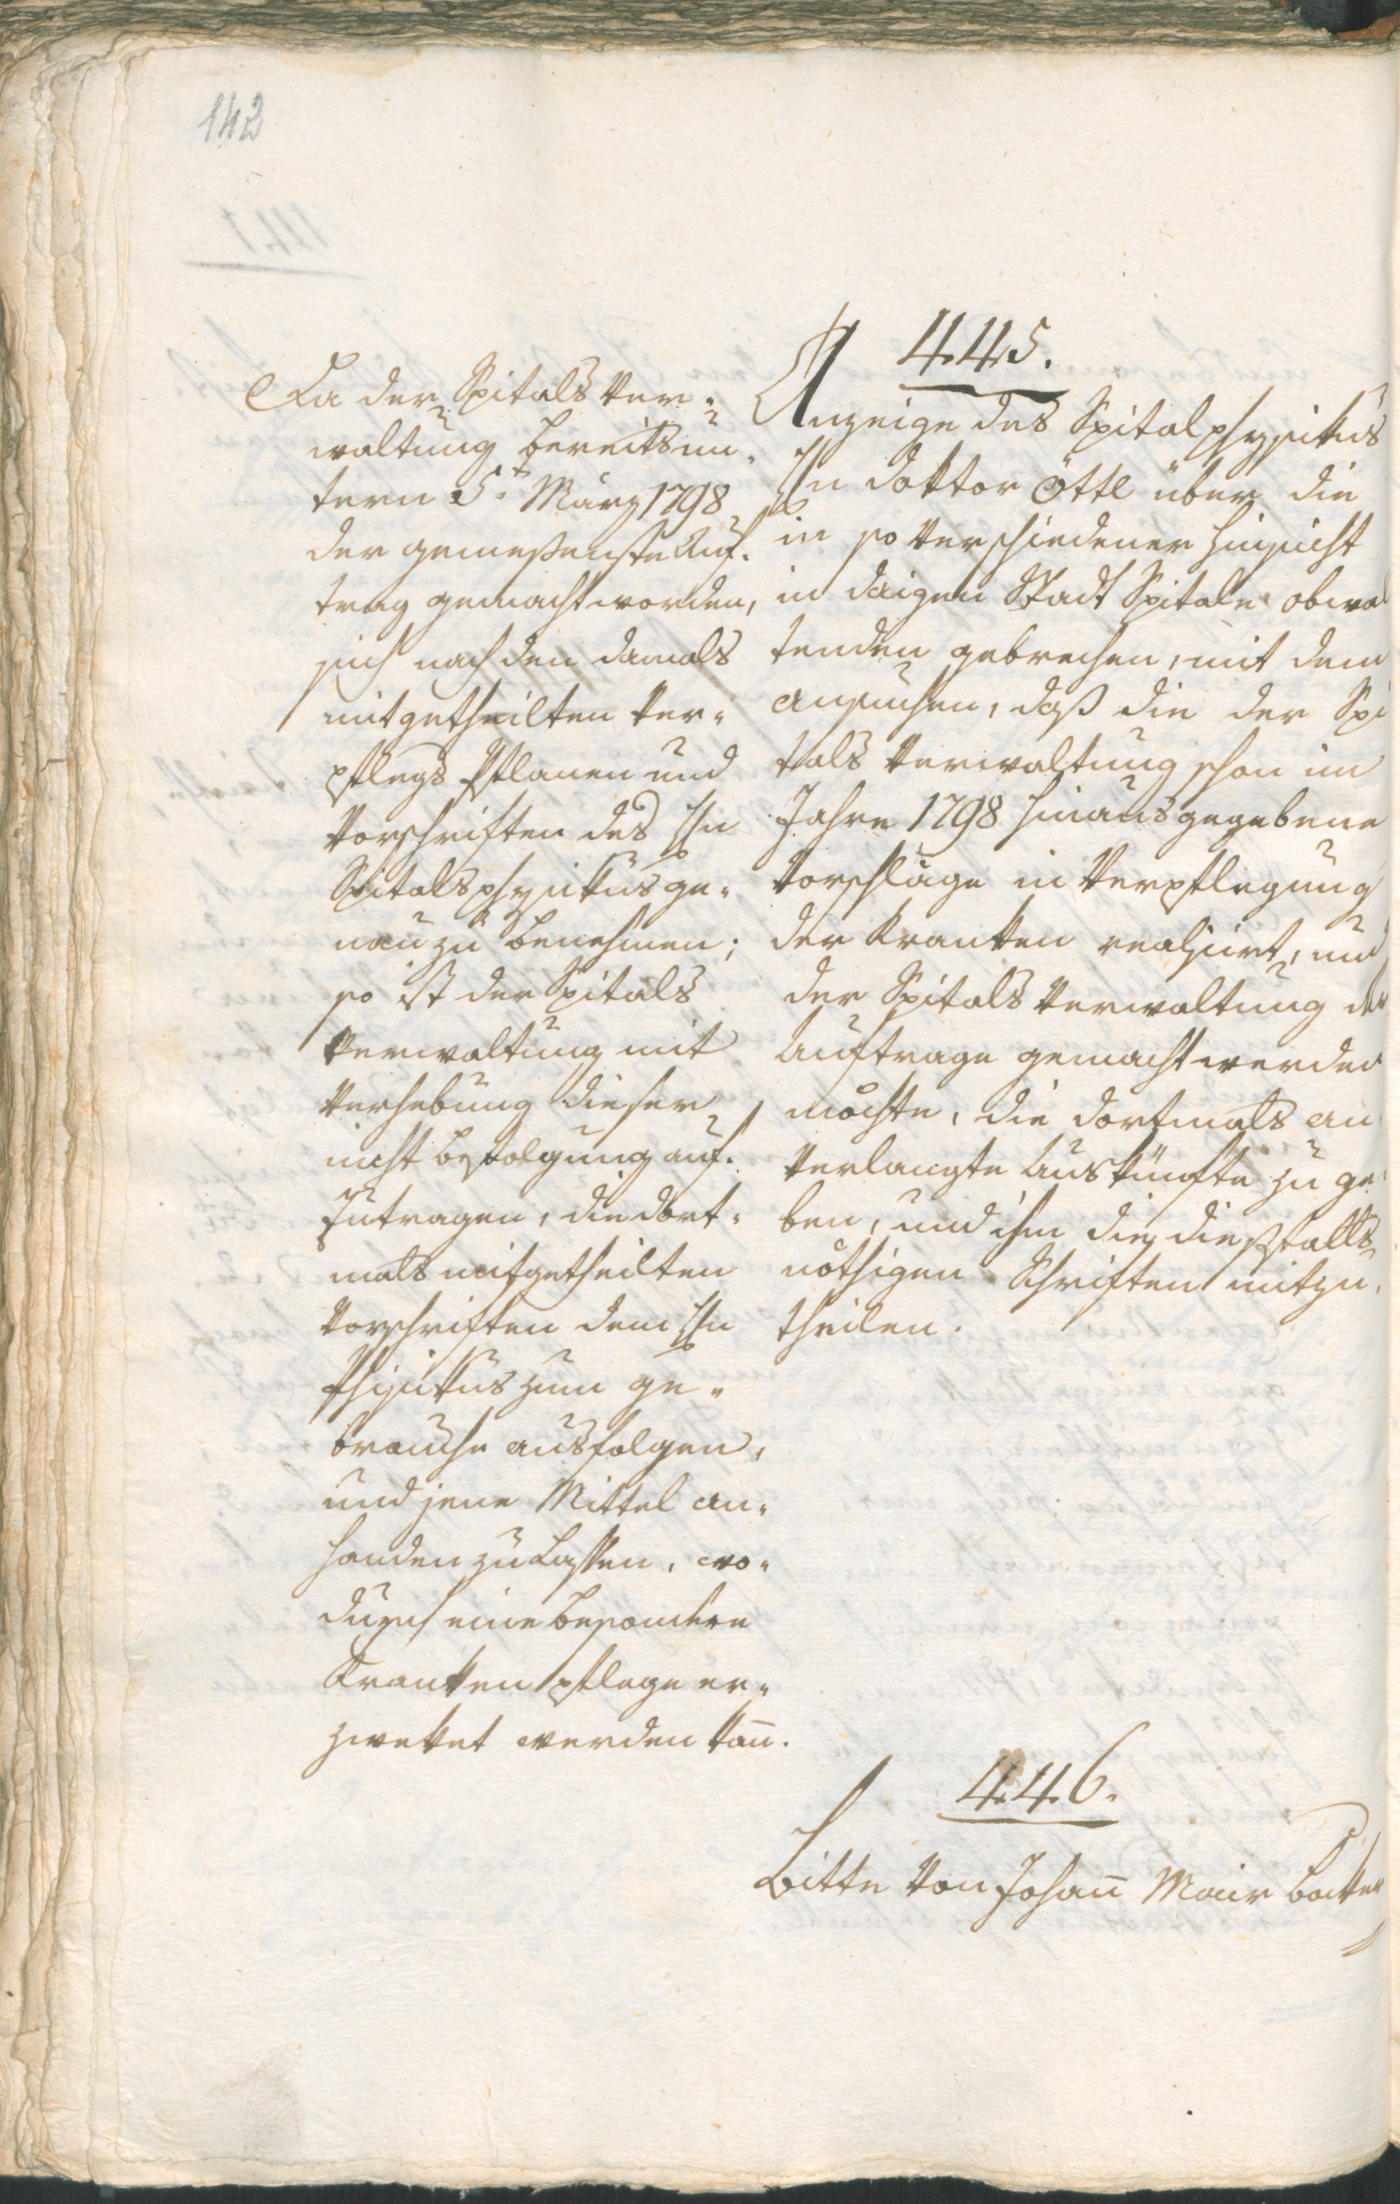 142
Da der Spitals Ver-
waltung bereits un-
tern 5t März 1798
der gemeßenste Auf-
trag gemacht worden,
sich nach den damals
mitgetheilten Ver-
pflegs Pflanen und
Vorschriften des Hn
Spitalsphysikus ge-
nau zu benehmen;
so ist der Spitals
Verwaltung mit
Verhebung dieser
nicht befolgung auf-
zutragen, die dort-
mals mitgetheilten
Vorschriften dem Hn
Phisikus zum ge-
brauche ausfolgen,
und jene Mittel an-
handen zu laßen, wo-
durch eine besondere
Kranken pflege er-
zweket werden kan̄.
445.
Anzeige des Spitalphysikus
Hn doktor Öttl über die
in so verschiedener Hinsicht
in daigen Stadt Spitale obwal
tenden gebrechen, mit dem
ansuchen, daß die der Spi
tals Verwaltung schon im
Jahre 1798 hinausgegebene
Vorschläge in Verpflegung
der Kranken realisirt, und
der Spitals Verwaltung der
Auftrage gemacht werden
möchte, die dortmals an
verlangte Auskünfte zu ge
ben, und ihm die dießfalls
nöthigen Schriften mitzu-
theilen.
446.
Bitte von Johan̄ Mair Becken